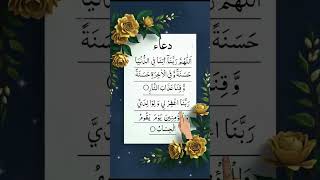 دعاء
اَللّٰهُمَّ رَبَّنَآ اٰتِنَا فِی الدُّنْیَا
حَسَنَةً وَّ فِی الْاٰخِرَةِ حَسَنَةً
وَّ قِنَا عَذَابَ النَّارِ
رَبَّنَا اغْفِرْ لِیْ وَ لِوَالِدَیَّ
وَ لِلْمُؤْمِنِیْنَ یَوْمَ یَقُوْمُ
الْحِسَابُ
حَسَنَةً
رَبَّنَا ا